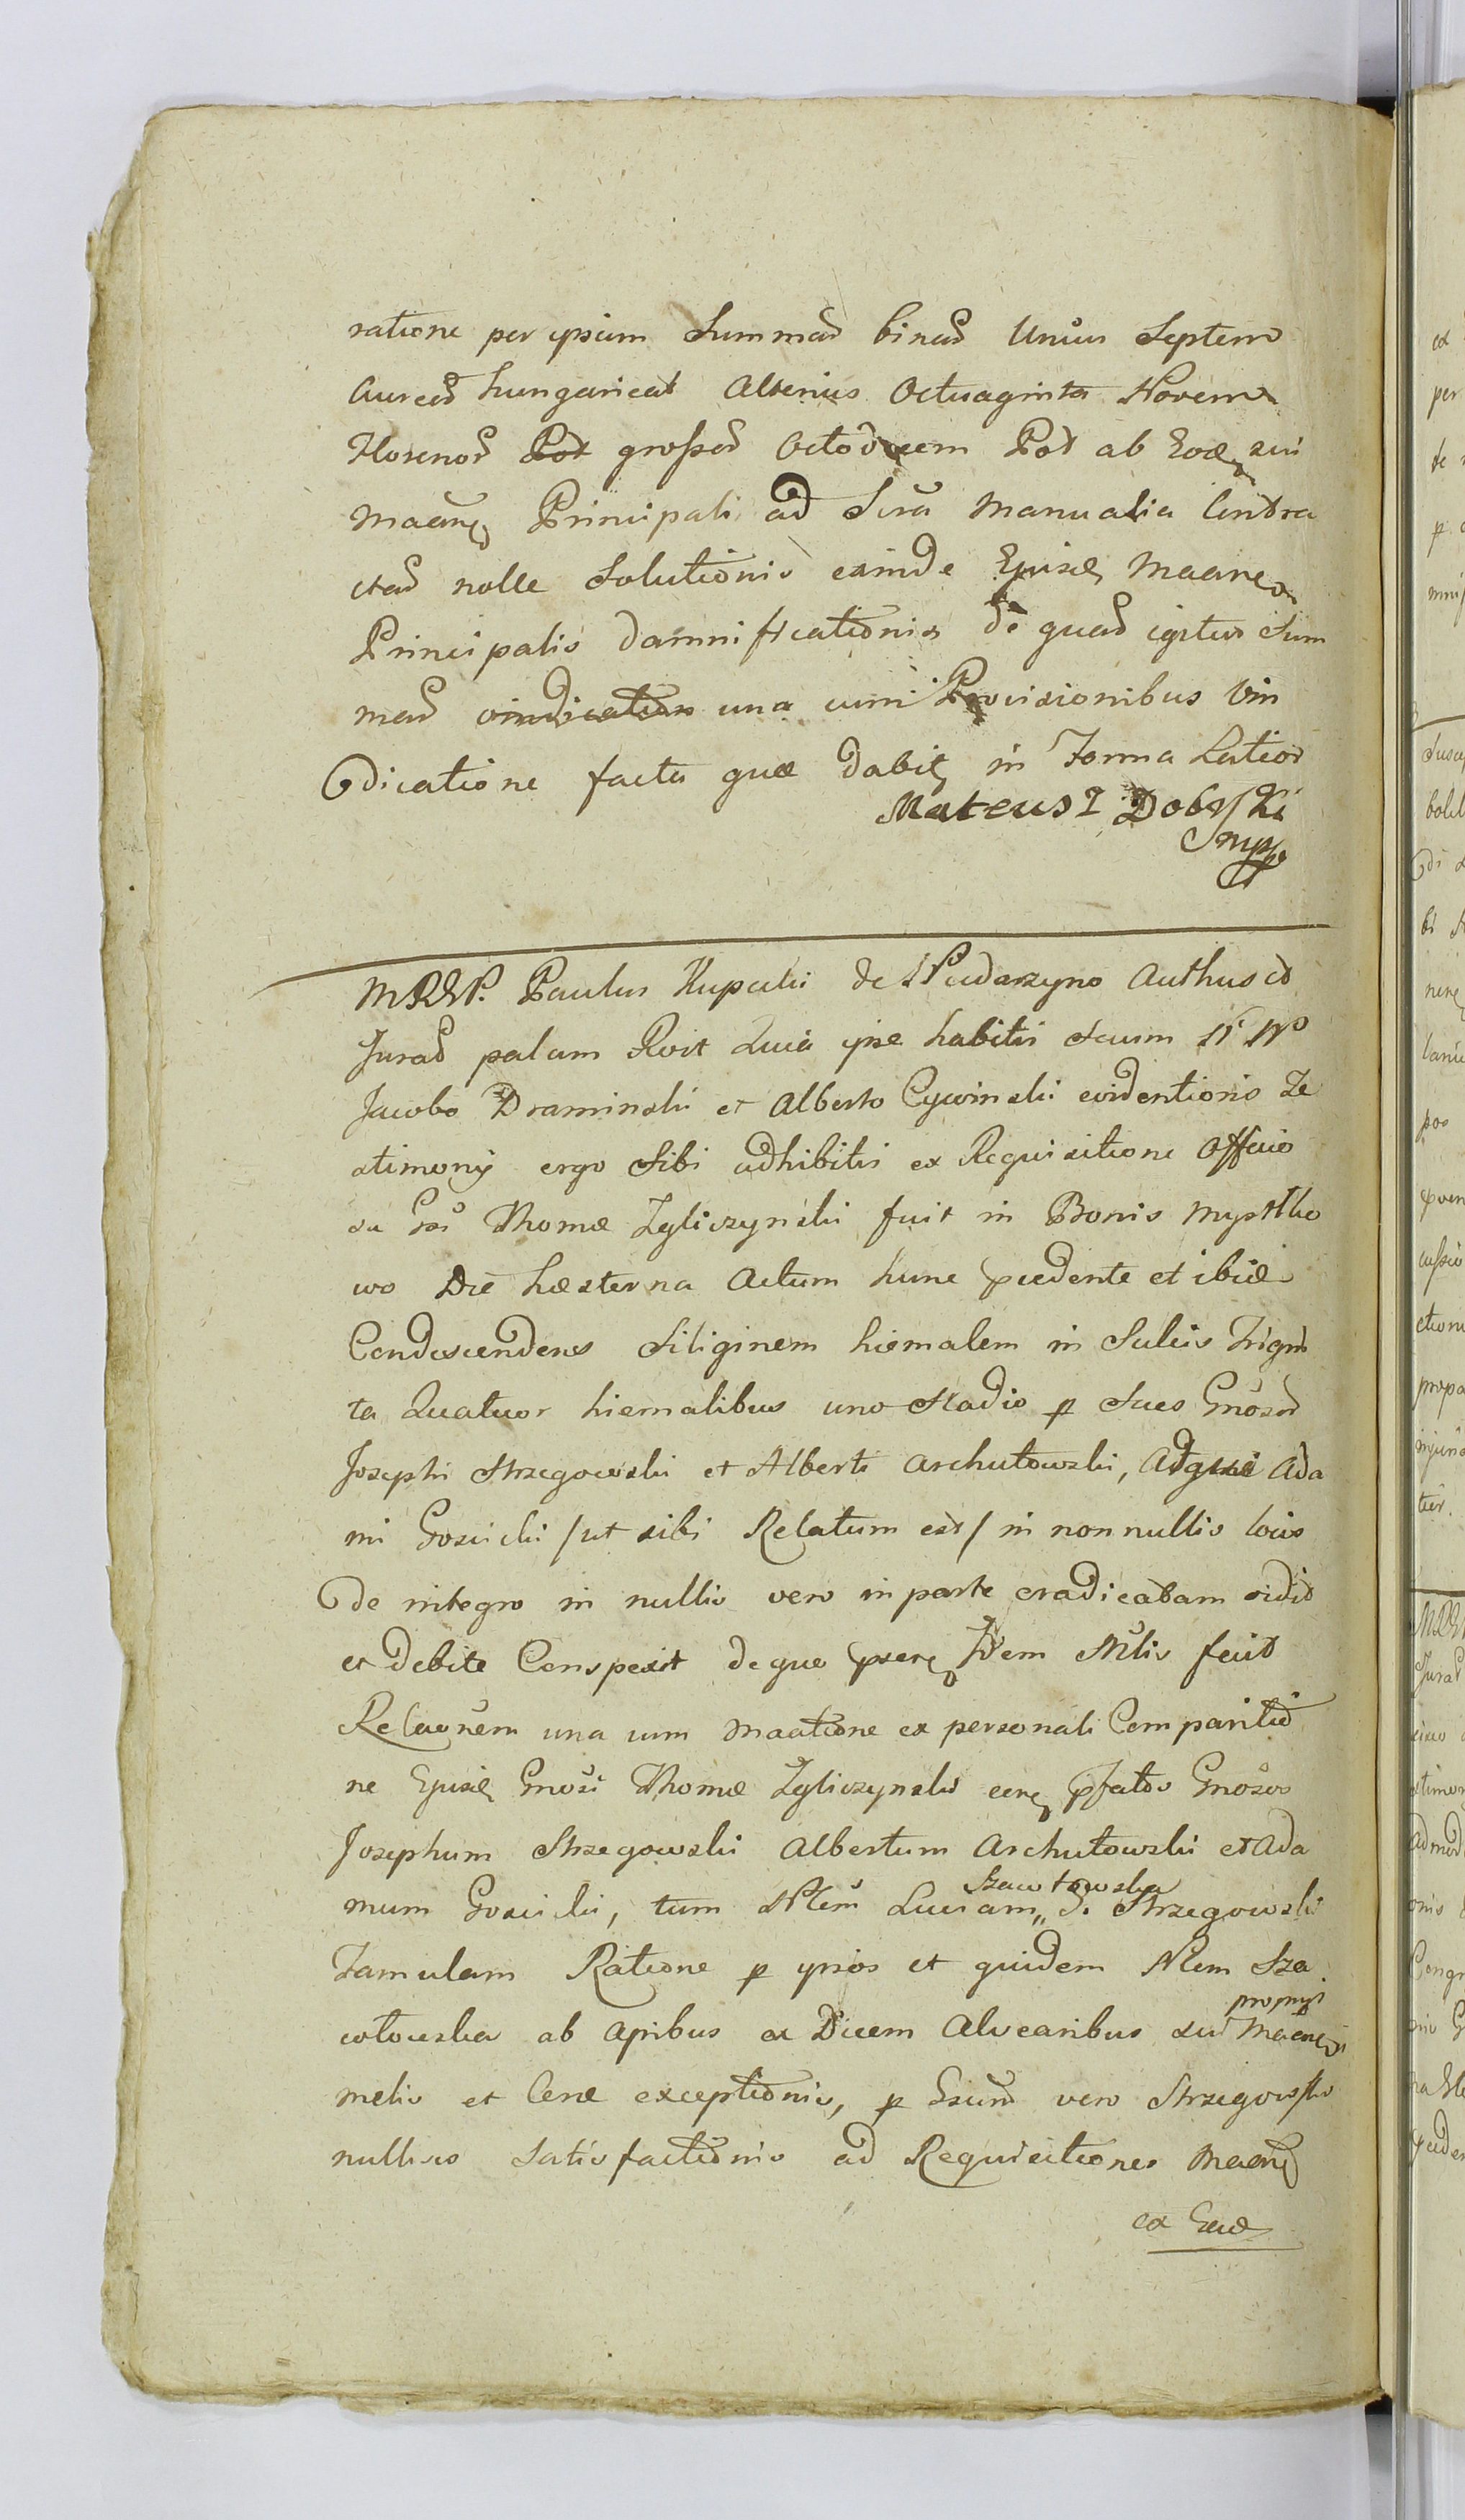 ratione per ipsum Summad binad Unius Septem
Aureod hungaricat Alterius Octuaginta Novem
Florenod Pot grossod Octodecem Pod ab Eod sui
Maane Principali ad Sua Manualia Contra
ctad nolle Solutionis exinde Ejusd Maane
Principalis damnificationis de quad igitur Sum
mad vindication una cum Provisionibus Vin
dicatione facta quae dabit in Forma Latior
Mateusz Dobski
mpp
MRGP. Paulus Kupcuki de Pudarzyno Authus et
Jurad palam Rvit Quia ipse habitis Secum N N
Jacobo Draminski et Alberto Cywinski evidentioris Te
stimonij ergo Sibi adhibitis ex Requisitione Officio
sa Gsi Thomae Zgliczynski fuit in Bonis Mystko
wo Die hesterna Actum hunc pcedente et ibid
Condescendens Siliginem hiemalem in Sulcis Trigin
ta Quatuor hiemalibus uno Stadio p Sues Gnosod
Josephi Strzegowski et Alberti Archutowski, Adque Ada
mi Gosicki / ut sibi Relatum est / in non nullis locis
de integro in nullis vero in parte eradicatam vidit
et debite Conspexit de quo pser Idem Mlis fecit
Relaonem una cum Maatione ex personali Comparitio
ne Ejusd Gnosi Thomae Zgliczynski erg pfatos Gnosos
Josephum Strzegowski Albertum Archutowski et Ada
mum Gosicki, tum Nlem Luciam „ Szawłowska G. Strzegowski
Famulam Ratione p ipsos et quidem Nlem Sza
włowska ab Apibus ex Decem Alvearibus sui propriis Maane
melis et Cerae exceptionis, p Gsum vero Strzegowski
nullius Satisfactionis ad Requisitiones Maane
ex Eaud